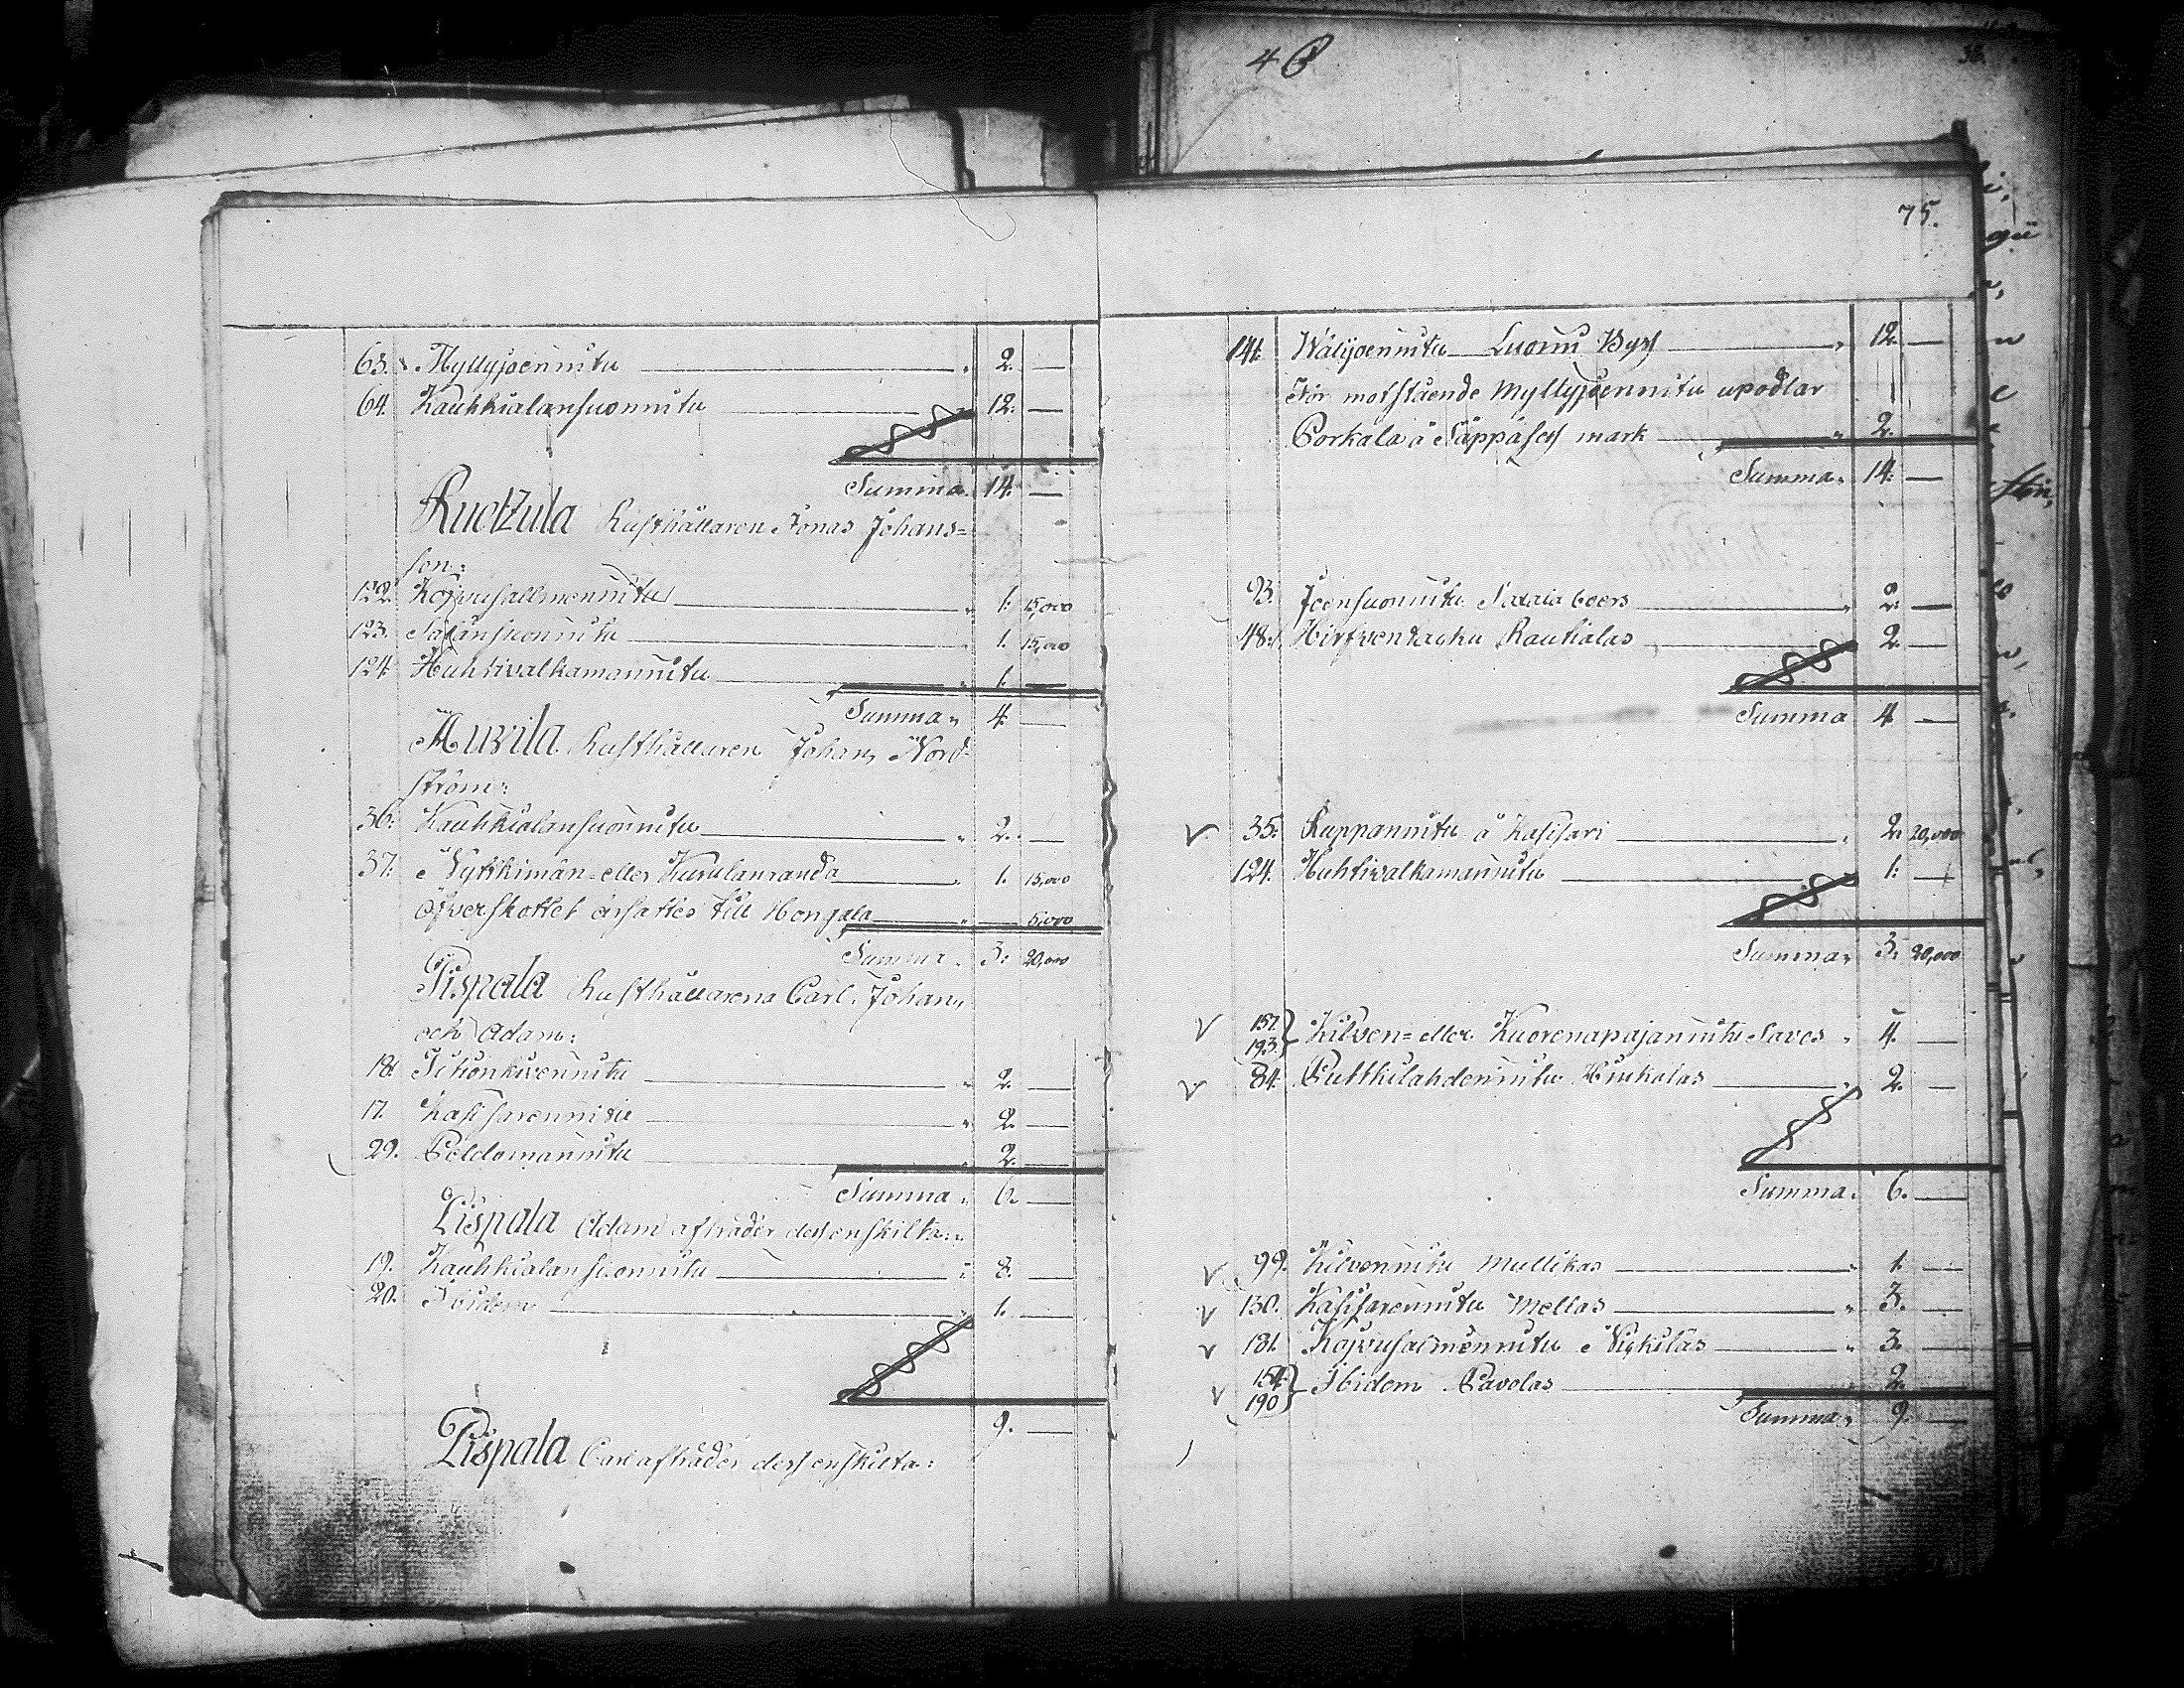 46
75.
63. Myllyjoennitu 2. —
64. Kauhkialansuonnitu 12. —
Summa 14. —
Ruotzula Rusthållaren Jonas Johans=
son:
122. Kojvusallmennitu 1. 15,000
123. Sajansuonnitu 1. 15,000
124. Huhtivalkamannitu 1. —
Summa 4. —
Auvila Rusthållaren Johan Nord-
ström:
36. Kauhkialansuonnitu 2. —
37. Nyttkimän= eller Kurulanranda 1. 15,000
Öfverskottet ersattes till Hongala — 5,000
Summa 3. 20,000
Pispala Rusthållarena Carl, Johan,
och Adam:
18. 2. —
17. Kasisarennitu 2. —
29. Peldomannitu 2. —
Summa 6. —
Pispala Adam afträder dess enskilta:
19. Kauhkialansuonnitu 8. —
20. Ibidem 1. —
9. —
Pispala Carl afträder dess enskilta:
141. Wälijoennitu Luomi Byss 12. —
För motstående Myllyjoennitu upodlar
Porkala å Säppäses mark 2.
Summa 14. —
93. Joensuonnitu Saxala boers 2. —
48. Hirfvendacku Rauhalas 2. —
Summa 4. —
V 35. Ruppannitu å Kasisari 2. 20,000
124. Huhtivalkamannitu 1. —
Summa 3. 20,000
V 157. 193. } Kilven= eller Kuorenapajannitu Saves 4. —
V 84. Puttkilahdennitu Hiukalas 2. —
Summa 6. —
V 99. Kilvennitu Mullikas 1. —
V 130. Kasisarennitu Mellas 3. —
V 131. Kojvusalmennitu Nickilas 3. —
V 154. 190 } Ibidem Pavolas 2.
Summa 9. —